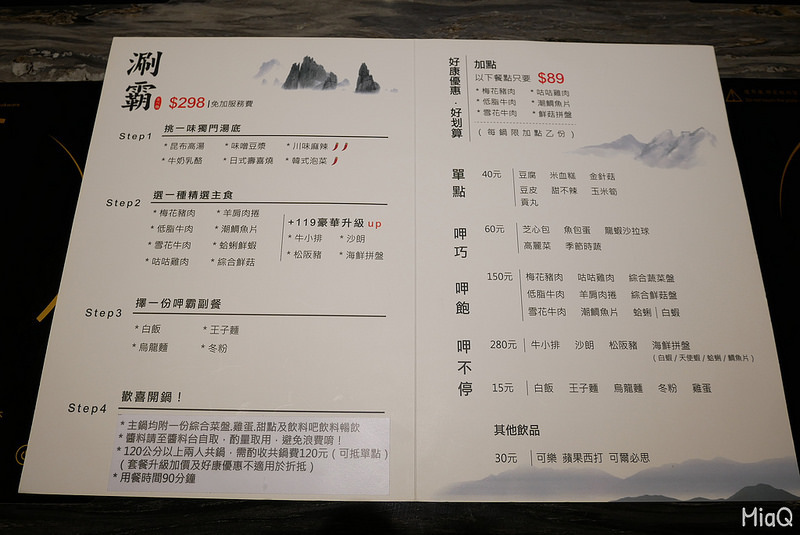 涮霸
$298 | 免加服務費
Step1 挑一味獨門湯底
*昆布高湯 *味噌豆漿 *川味麻辣
*牛奶乳酪 *日式壽喜燒 *韓式泡菜
Step2 選一種精選主食
*梅花豬肉 *羊肩肉捲
*低脂牛肉 *潮鯛魚片
*雪花牛肉 *蛤蜊鮮蝦
*咕咕雞肉 *綜合鮮菇
+119豪華升級up
*牛小排 *沙朗
*松阪豬 *海鮮拼盤
Step3 擇一份呷霸副餐
*白飯 *王子麵
*烏龍麵 *冬粉
Step4 歡喜開鍋！
*主鍋均附一份綜合菜盤,雞蛋,甜點及飲料吧飲料暢飲
*醬料請至醬料台自取，酌量取用，避免浪費唷！
*120公分以上兩人共鍋，需酌收共鍋費120元（可抵單點）
（套餐升級加價及好康優惠不適用於折抵）
*用餐時間90分鐘
好康優惠．好划算
加點
以下餐點只要 $89
*梅花豬肉 *咕咕雞肉
*低脂牛肉 *潮鯛魚片
*雪花牛肉 *鮮菇拼盤
（每鍋限加點乙份）
單點
40元 豆腐 米血糕 金針菇
豆皮 甜不辣 玉米筍
貢丸
呷巧
60元 芝心包 魚包蛋 龍蝦沙拉球
高麗菜 季節時蔬
呷飽
150元 梅花豬肉 咕咕雞肉 綜合蔬菜盤
低脂牛肉 羊肩肉捲 綜合鮮菇盤
雪花牛肉 潮鯛魚片 蛤蜊 | 白蝦
呷不停
280元 牛小排 沙朗 松阪豬 海鮮拼盤
（白蝦/天使蝦/蛤蜊/鯛魚片）
15元 白飯 王子麵 烏龍麵 冬粉 雞蛋
其他飲品
30元 可樂 蘋果西打 可爾必思
MiaQ